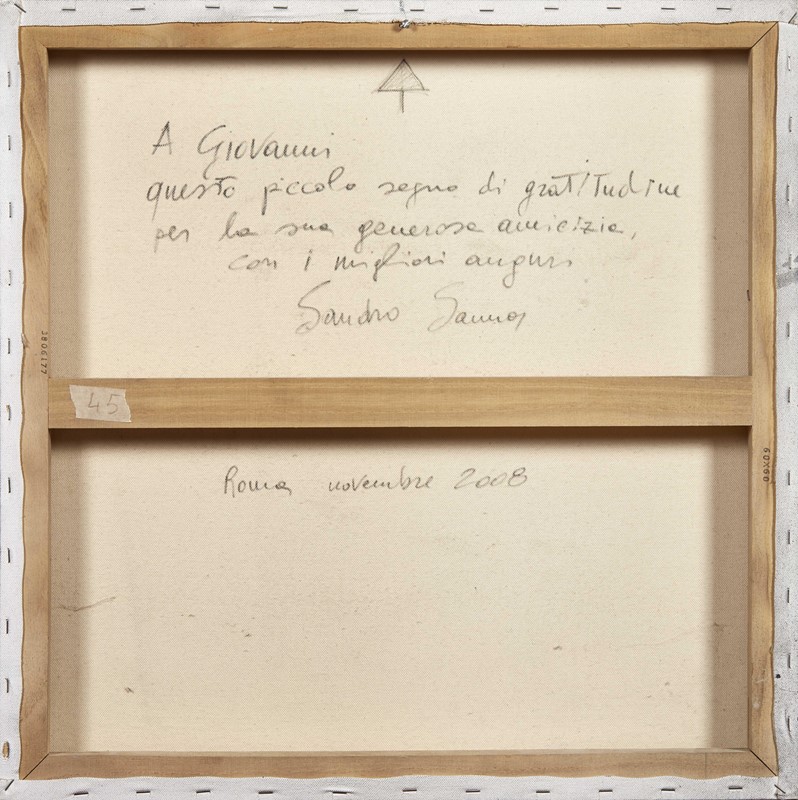 A Giovanni
questo piccolo segno di gratitudine
per la sua generosa amicizia,
con i migliori auguri
Sandro Sanna
3806177
45
60X60
Roma novembre 2008